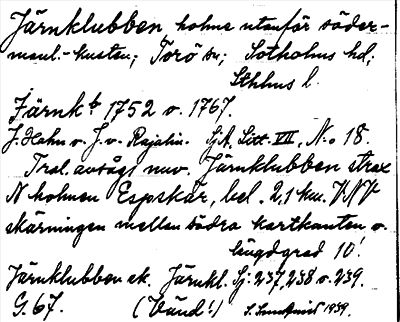 Järnklubben, holme utanför söder-
manl.-kusten; Torö sn; Sotholms hd;
Sthlms l.
Järnk.b 1752 o. 1767.
J. Hahn o. J. v. Rajalin. SjA, Litt. VII, N:o 18.
Trol. avsågs nuv. Järnklubben strax
N holmen Espskär, bel. 2,1 km. VNV
skärningen mellan södra kartkanten o.
längdgrad 10'.
Järnklubben ek. Järnkl. Sj: 237, 238 o. 239.
G. 67. (Vänd!) 1939.